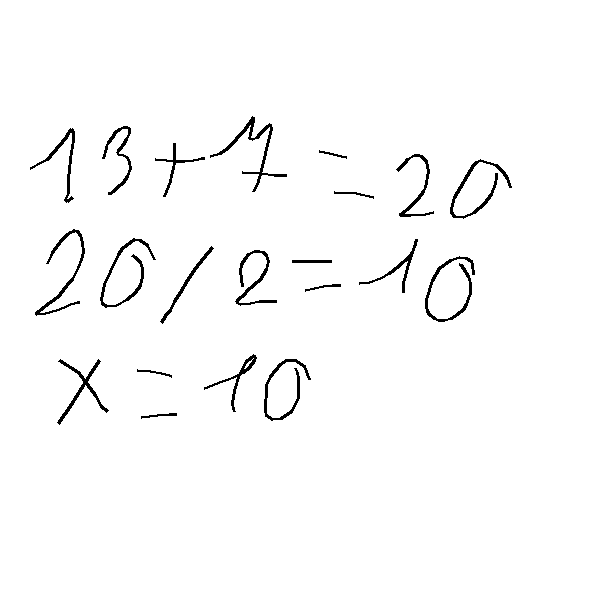 13+7=20
20/2=10
x=10